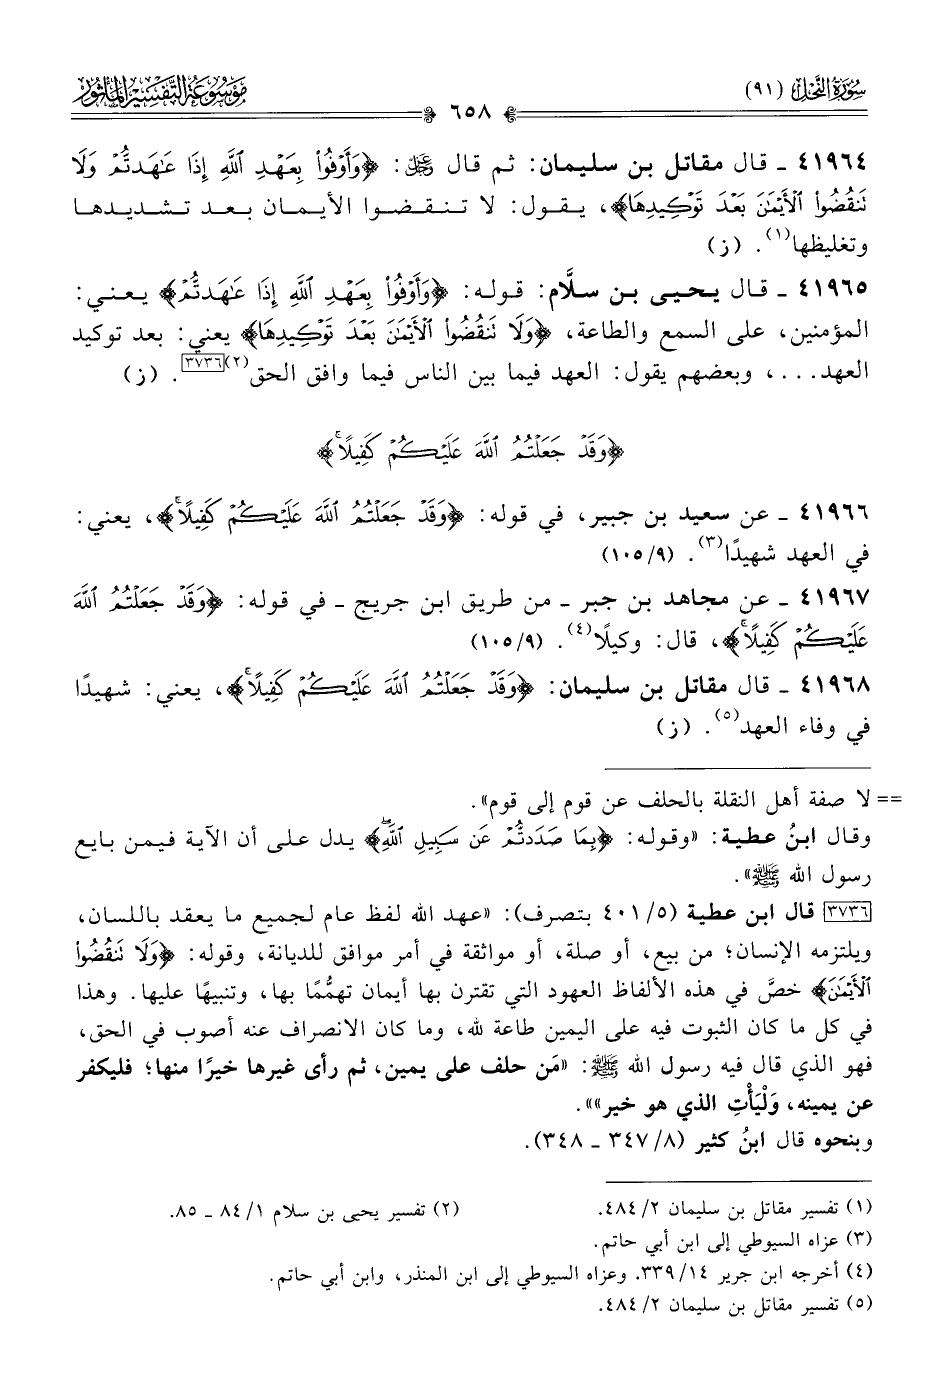 سُورَةُ النَّحْلِ (٩١)
٦٥٨
مَوْسُوعَةُ التَّفْسِيرِ المَأْثُور
٤١٩٦٤ ـ قال مقاتل بن سليمان: ثم قال ﷿: ﴿وَأَوْفُواْ بِعَهْدِ ٱللَّهِ إِذَا عَٰهَدتُّمْ وَلَا
تَنقُضُواْ ٱلْأَيْمَٰنَ بَعْدَ تَوْكِيدِهَا﴾، يقول: لا تنقضوا الأيمان بعد تشديدها
وتغليظها(١). (ز)
٤١٩٦٥ ـ قال يحيى بن سلَّام: قوله: ﴿وَأَوْفُواْ بِعَهْدِ ٱللَّهِ إِذَا عَٰهَدتُّمْ﴾ يعني:
المؤمنين، على السمع والطاعة، ﴿وَلَا تَنقُضُواْ ٱلْأَيْمَٰنَ بَعْدَ تَوْكِيدِهَا﴾ يعني: بعد توكيد
العهد...، وبعضهم يقول: العهد فيما بين الناس فيما وافق الحق(٢)[٣٧٣٦]. (ز)
﴿وَقَدْ جَعَلْتُمُ ٱللَّهَ عَلَيْكُمْ كَفِيلًا ۚ﴾
٤١٩٦٦ ـ عن سعيد بن جبير، في قوله: ﴿وَقَدْ جَعَلْتُمُ ٱللَّهَ عَلَيْكُمْ كَفِيلًا ۚ﴾، يعني:
في العهد شهيدًا(٣). (٩/ ١٠٥)
٤١٩٦٧ ـ عن مجاهد بن جبر ـ من طريق ابن جريج ـ في قوله: ﴿وَقَدْ جَعَلْتُمُ ٱللَّهَ
عَلَيْكُمْ كَفِيلًا ۚ﴾، قال: وكيلًا(٤). (٩/ ١٠٥)
٤١٩٦٨ ـ قال مقاتل بن سليمان: ﴿وَقَدْ جَعَلْتُمُ ٱللَّهَ عَلَيْكُمْ كَفِيلًا ۚ﴾، يعني: شهيدًا
في وفاء العهد(٥). (ز)
== لا صفة أهل النقلة بالحلف عن قوم إلى قوم».
وقال ابنُ عطية: «وقوله: ﴿بِمَا صَدَدتُّمْ عَن سَبِيلِ ٱللَّهِ ۖ﴾ يدل على أن الآية فيمن بايع
رسول الله ﷺ».
[٣٧٣٦] قال ابن عطية (٥/ ٤٠١ بتصرف): «عهد الله لفظ عام لجميع ما يعقد باللسان،
ويلتزمه الإنسان؛ من بيع، أو صلة، أو مواثقة في أمر موافق للديانة، وقوله: ﴿وَلَا تَنقُضُواْ
ٱلْأَيْمَٰنَ﴾ خصَّ في هذه الألفاظ العهود التي تقترن بها أيمان تهمُّمًا بها، وتنبيهًا عليها. وهذا
في كل ما كان الثبوت فيه على اليمين طاعة لله، وما كان الانصراف عنه أصوب في الحق،
فهو الذي قال فيه رسول الله ﷺ: «مَن حلف على يمين، ثم رأى غيرها خيرًا منها؛ فليكفر
عن يمينه، وَلْيَأْتِ الذي هو خير»».
وبنحوه قال ابنُ كثير (٨/ ٣٤٧ ـ ٣٤٨).
(١) تفسير مقاتل بن سليمان ٢/ ٤٨٤. (٢) تفسير يحيى بن سلام ١/ ٨٤ ـ ٨٥.
(٣) عزاه السيوطي إلى ابن أبي حاتم.
(٤) أخرجه ابن جرير ١٤/ ٣٣٩. وعزاه السيوطي إلى ابن المنذر، وابن أبي حاتم.
(٥) تفسير مقاتل بن سليمان ٢/ ٤٨٤.